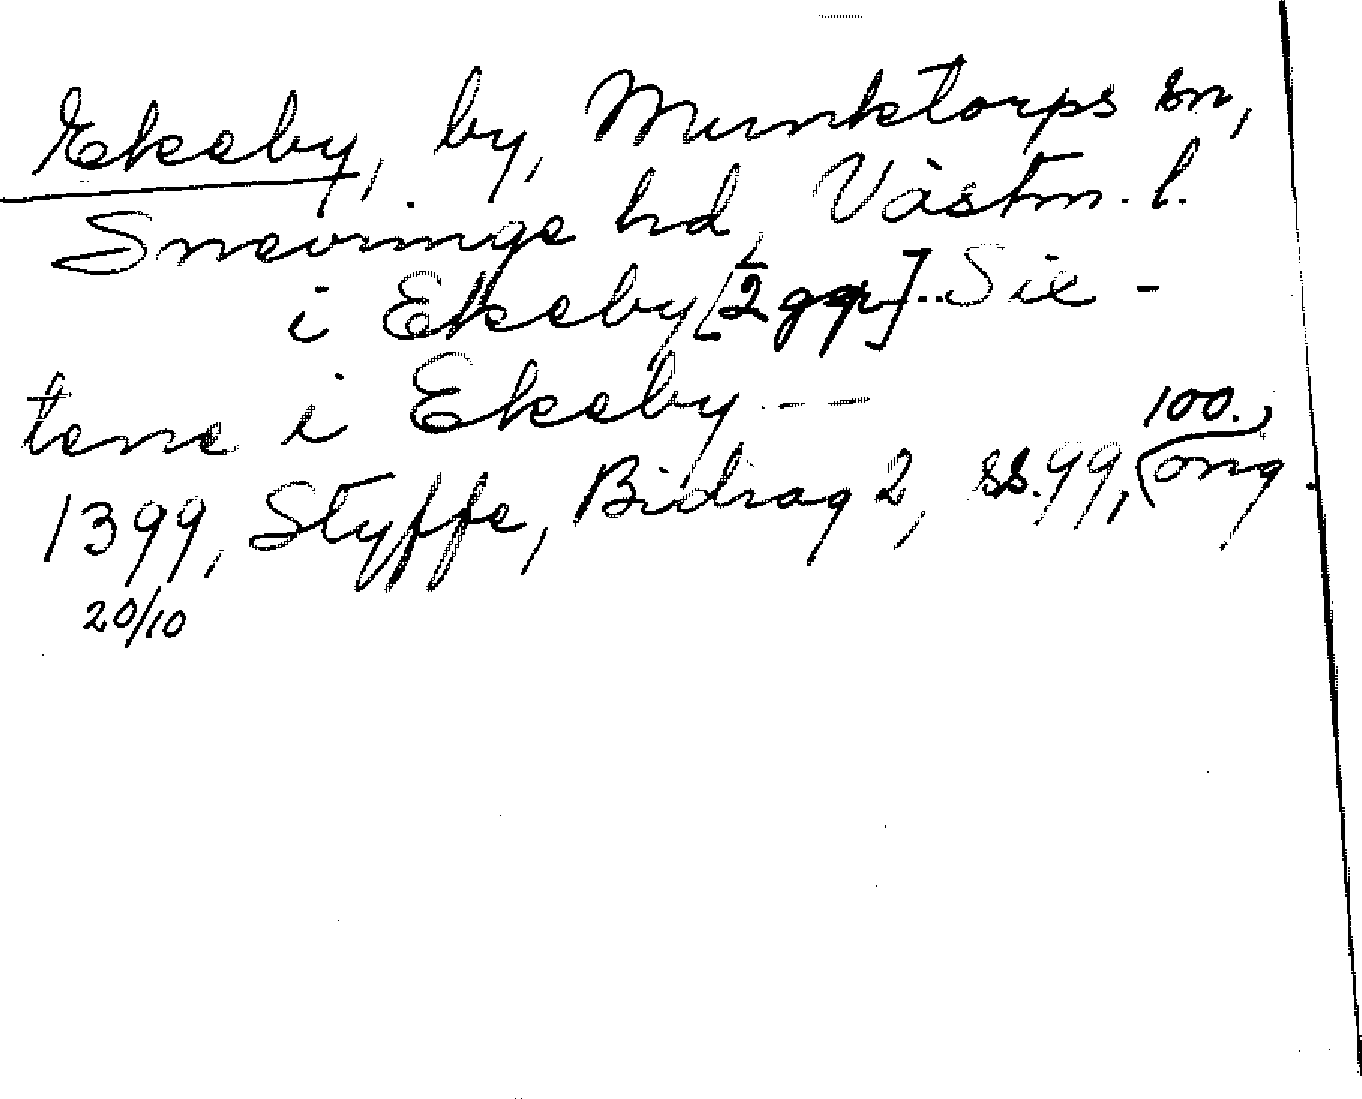 Ekeby, by, Munktorps sn,
Snevringe hd, Västm. l.
i Ekeby [2 ggr] .. Six-
tene i Ekeby - --
1399, Styffe, Bidrag 2, ss. 99, 100.
orig.
20/10